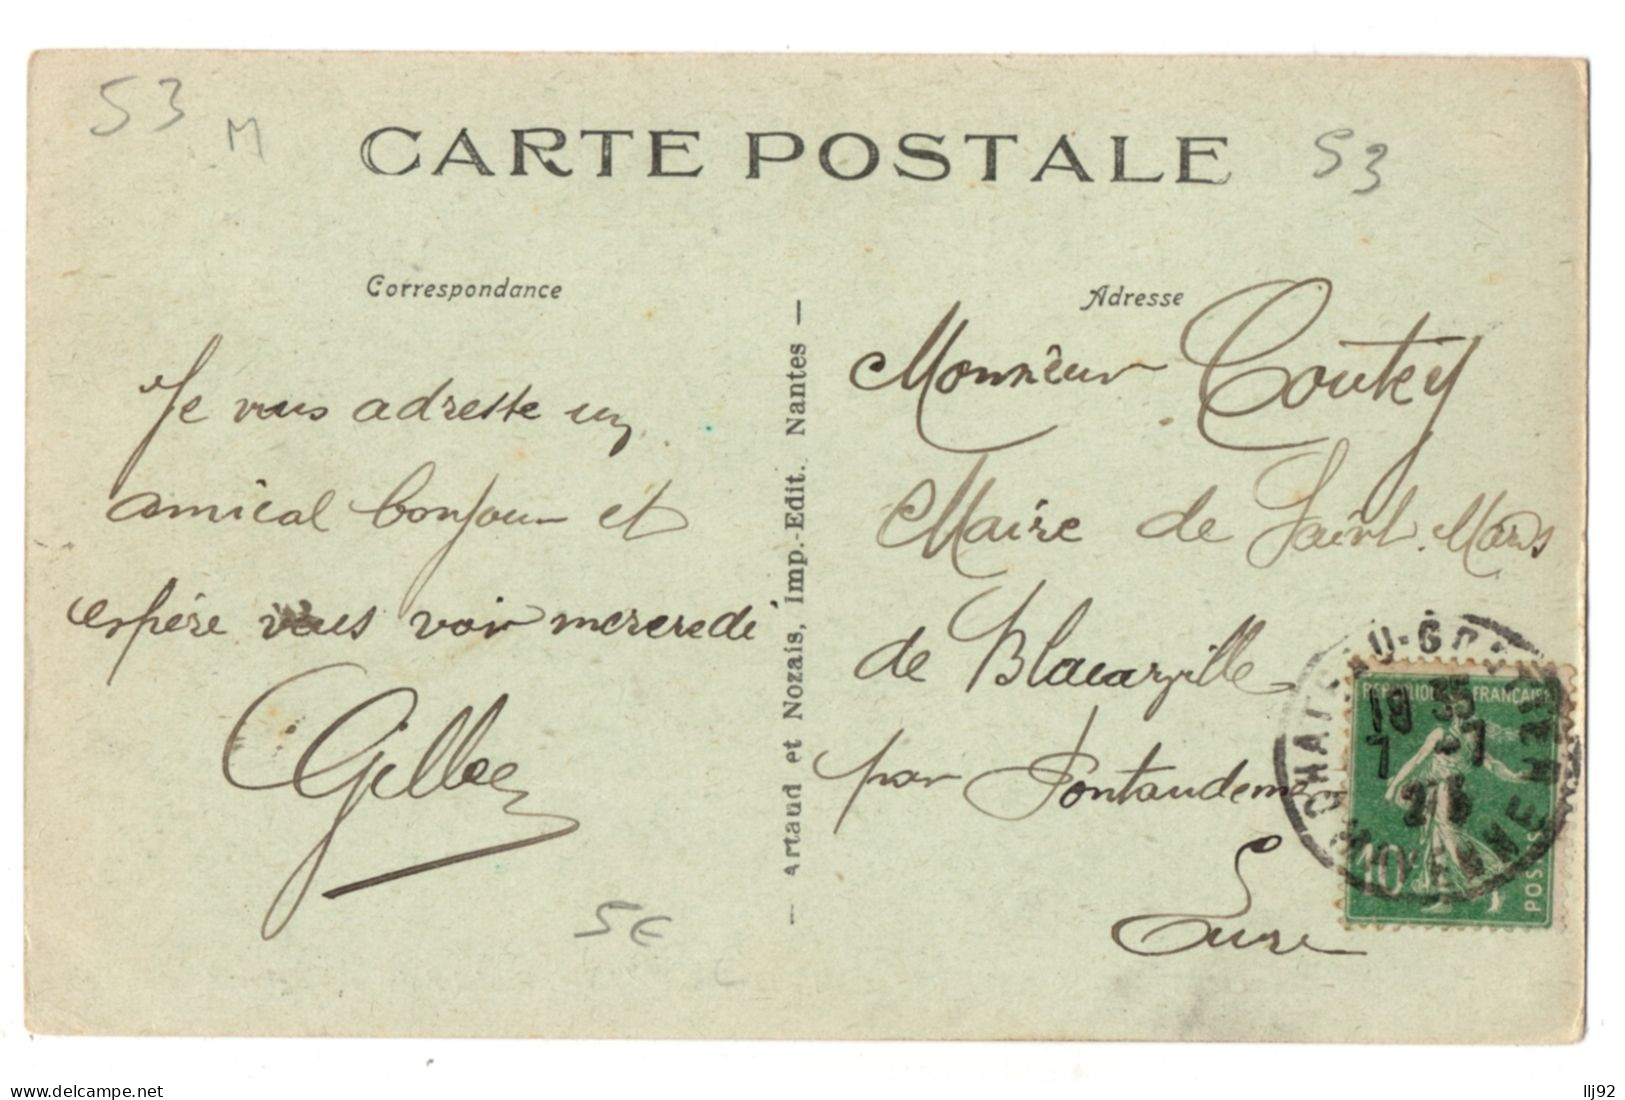 53
M
CARTE POSTALE
53
Correspondance
Je vous adresse un
amical bonjour et
espère vous voir mercredi
5€
— Artaud et Nozais, Imp.-Edit. Nantes —
Adresse
Monsieur Coutey
Maire de Saint Mards
de Blacarville
par Pontaudemer
Eure
CHATEAU-GONTIER
19 35
7 -7
MAYENNE
REPUBLIQUE FRANÇAISE
10c
POSTES
delcampe.net
llj92